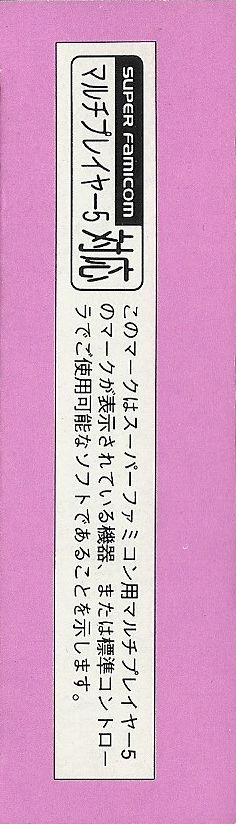 SUPER FAMICOM
マルチプレイヤー5 対応
このマークはスーパーファミコン用マルチプレイヤー5
のマークが表示されている機器、または標準コントロー
ラでご使用可能なソフトであることを示します。